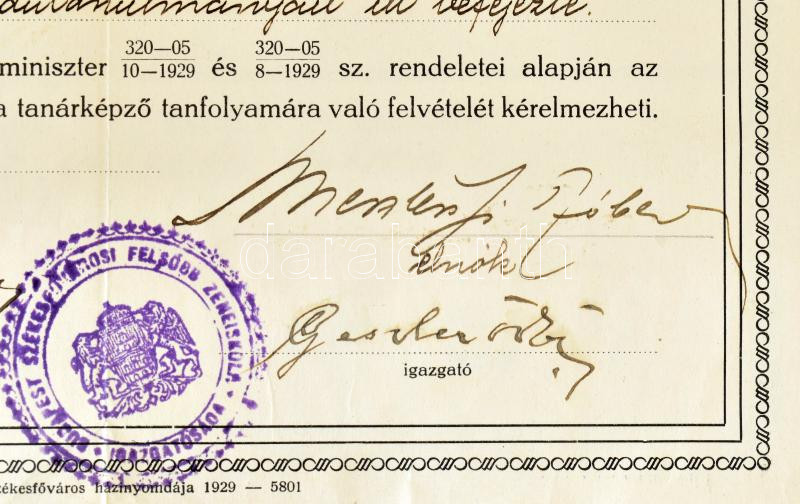 tanulmányait itt befejezte.
miniszter 320—05/10—1929 és 320—05/8—1929 sz. rendeletei alapján az
a tanárképző tanfolyamára való felvételét kérelmezheti.
Meszlényi Róbert
elnök
Geszler Ödön
igazgató
BUDAPEST SZÉKESFŐVÁROSI FELSŐBB ZENEISKOLA IGAZGATÓSÁGA
zékesfőváros házinyomdája 1929 — 5801
darabanth